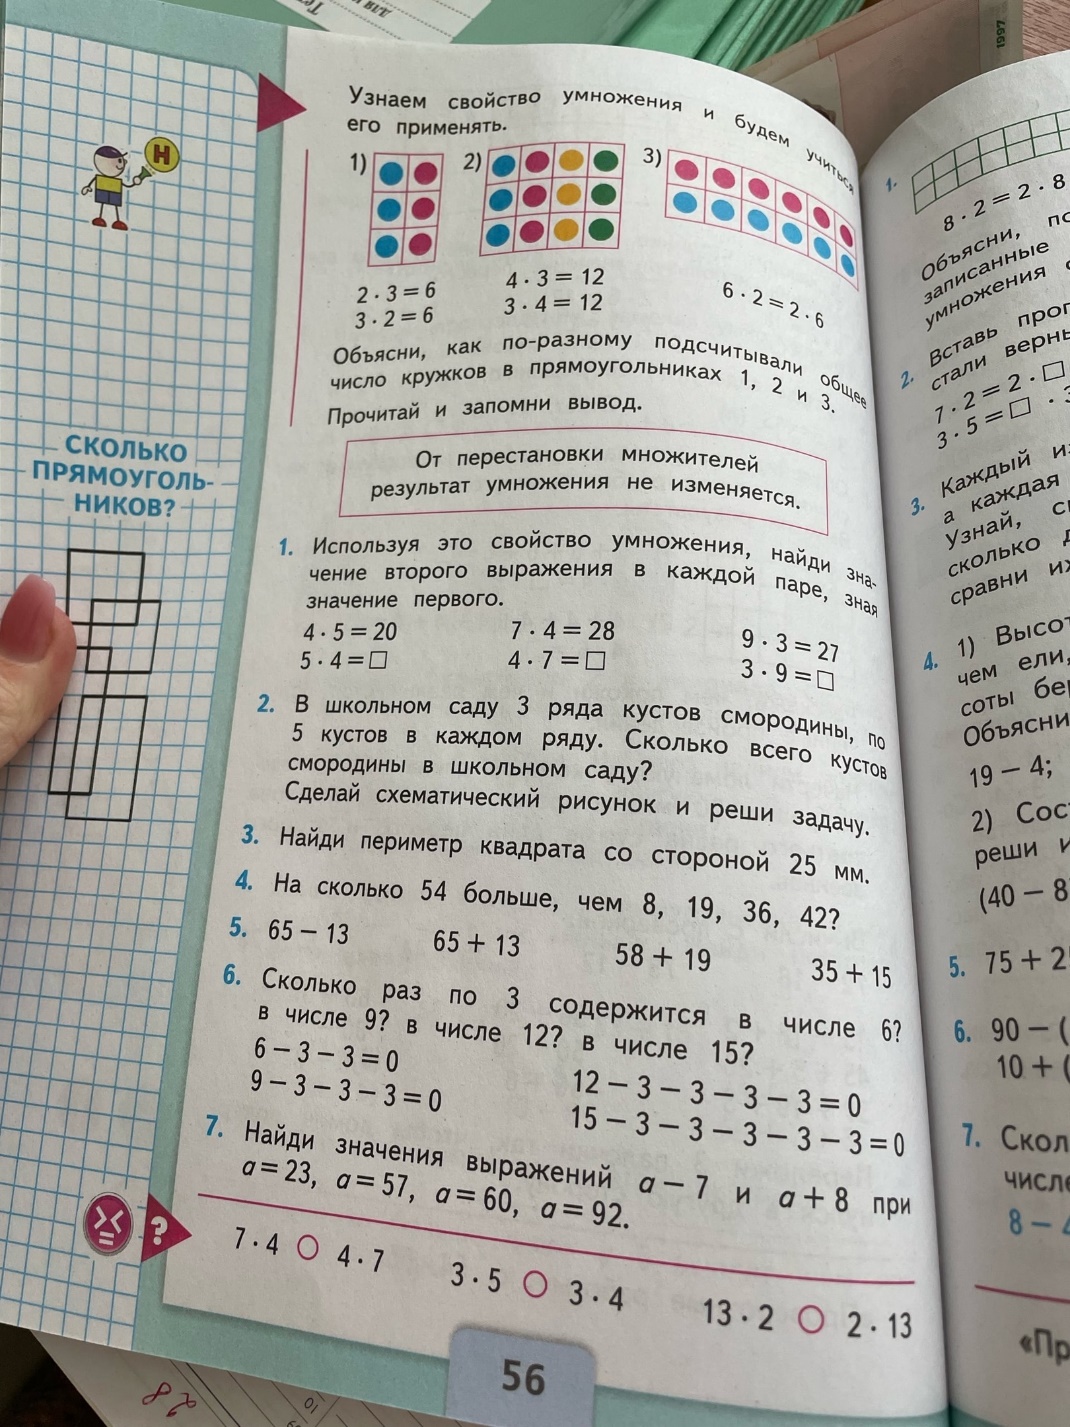 1997
Узнаем свойство умножения и будем учиться
его применять.
Н
1) 2) 3)
2 · 3 = 6
3 · 2 = 6
4 · 3 = 12
3 · 4 = 12
6 · 2 = 2 · 6
Объясни, как по-разному подсчитывали общее
число кружков в прямоугольниках 1, 2 и 3.
Прочитай и запомни вывод.
От перестановки множителей
результат умножения не изменяется.
СКОЛЬКО
ПРЯМОУГОЛЬ-
НИКОВ?
1. Используя это свойство умножения, найди зна-
чение второго выражения в каждой паре, зная
значение первого.
4 · 5 = 20 7 · 4 = 28 9 · 3 = 27
5 · 4 = □ 4 · 7 = □ 3 · 9 = □
2. В школьном саду 3 ряда кустов смородины, по
5 кустов в каждом ряду. Сколько всего кустов
смородины в школьном саду?
Сделай схематический рисунок и реши задачу.
3. Найди периметр квадрата со стороной 25 мм.
4. На сколько 54 больше, чем 8, 19, 36, 42?
5. 65 − 13 65 + 13 58 + 19 35 + 15
6. Сколько раз по 3 содержится в числе 6?
в числе 9? в числе 12? в числе 15?
6 − 3 − 3 = 0 12 − 3 − 3 − 3 − 3 = 0
9 − 3 − 3 − 3 = 0 15 − 3 − 3 − 3 − 3 − 3 = 0
7. Найди значения выражений a − 7 и a + 8 при
a = 23, a = 57, a = 60, a = 92.
?
7 · 4 ○ 4 · 7 3 · 5 ○ 3 · 4 13 · 2 ○ 2 · 13
56
1.
8 · 2 = 2 · 8
Объясни,
записанные
умножения
2. Вставь
стали
7 · 2 = 2 · □
3 · 5 = □ ·
3. Каждый
а каждая
Узнай,
сколько
сравни
4. 1)
чем ели,
соты
Объясни
19 − 4;
2)
реши
(40 − 8
5. 75 + 2
6. 90 − (
10 + (
7.
8 −
28
10